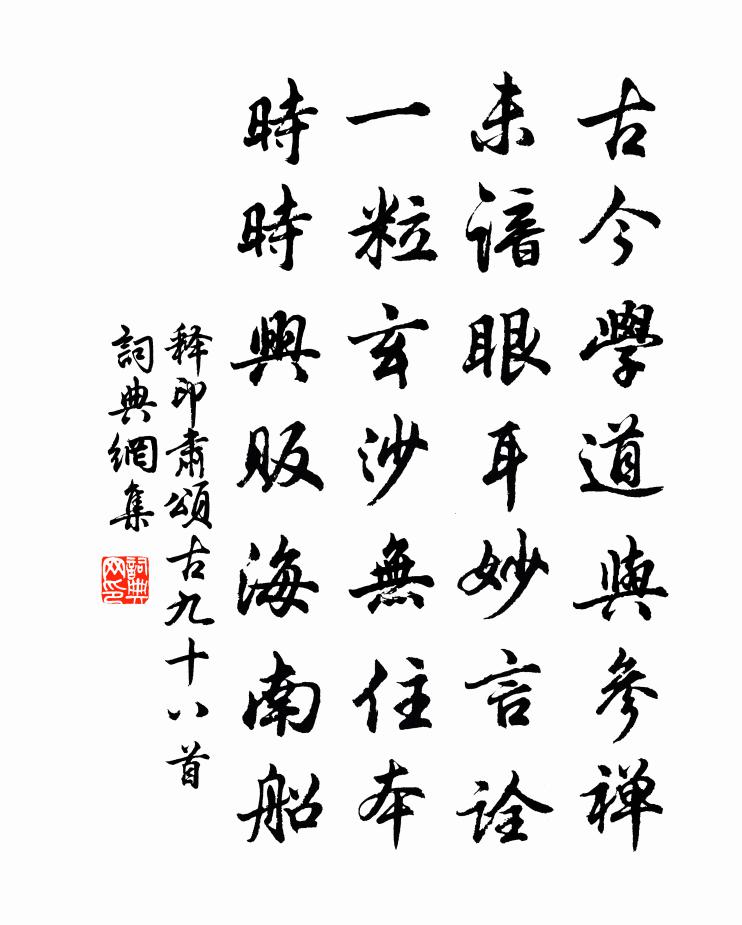 古今學道與參禅
未諳眼耳妙言詮
一粒玄沙無住本
時時興販海南船
释印肃頌古九十八首
詞典網集
詞典
网印